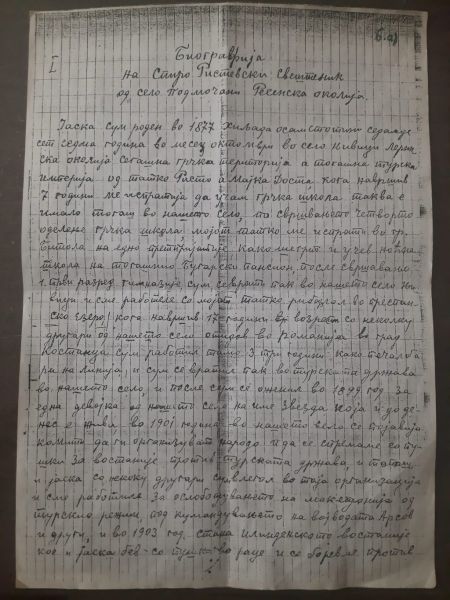 I
Биогравија
на Стиро Ристевски свештеник
од село Подмочани Ресенска околија.
Јаска сум роден во 1877 хиљада осамстотини седамде
сет седма година во месец октомври во село Нивици Лерин
ска околија сегашна грчка територија а тогашна турска
империја од татко Ристо а Мајка Доста, кога навршив
7 години ме испратија да учам грчка школа таква е
имало тогаш во нашето село, по свршването четворто
оделене грчка школа мојот татко ме испрати во гр.
Битола на едно претпријатије како шегрт и учев ноќна
школа на тогашнио Бугарски пансион, после свршавано
I први разред гимназије сум се врати пак во нашето село Ни
вици и сме работеле со мојот татко риболов во Преспан
ско езеро, кога навршив 17 години возраст со неколку
другари од нашето село отидов во Романија во град
Костанца сум работил тамо 3 три години како печалба
ри на линија, и сум се вратил пак во турската држава
во нашето село, и после сум се оженил во 1899 год за
една девојка од нашето село на име Звезда која и до де
нес е жива во 1901 година во нашето село се појавија
комити да ги организират народо и да се спремаме со пу
шки за востание против турската држава, и тогаш
и јаска со некоку другари сум влегол во таја организација
и сме работиле за ослободувањето на Македонија од
турскио режим под кумандувањето на војводата Арсов
и други, и во 1903 год. стана илинденското востаније
кое и јаска бев со пушка во раце и се боревме против